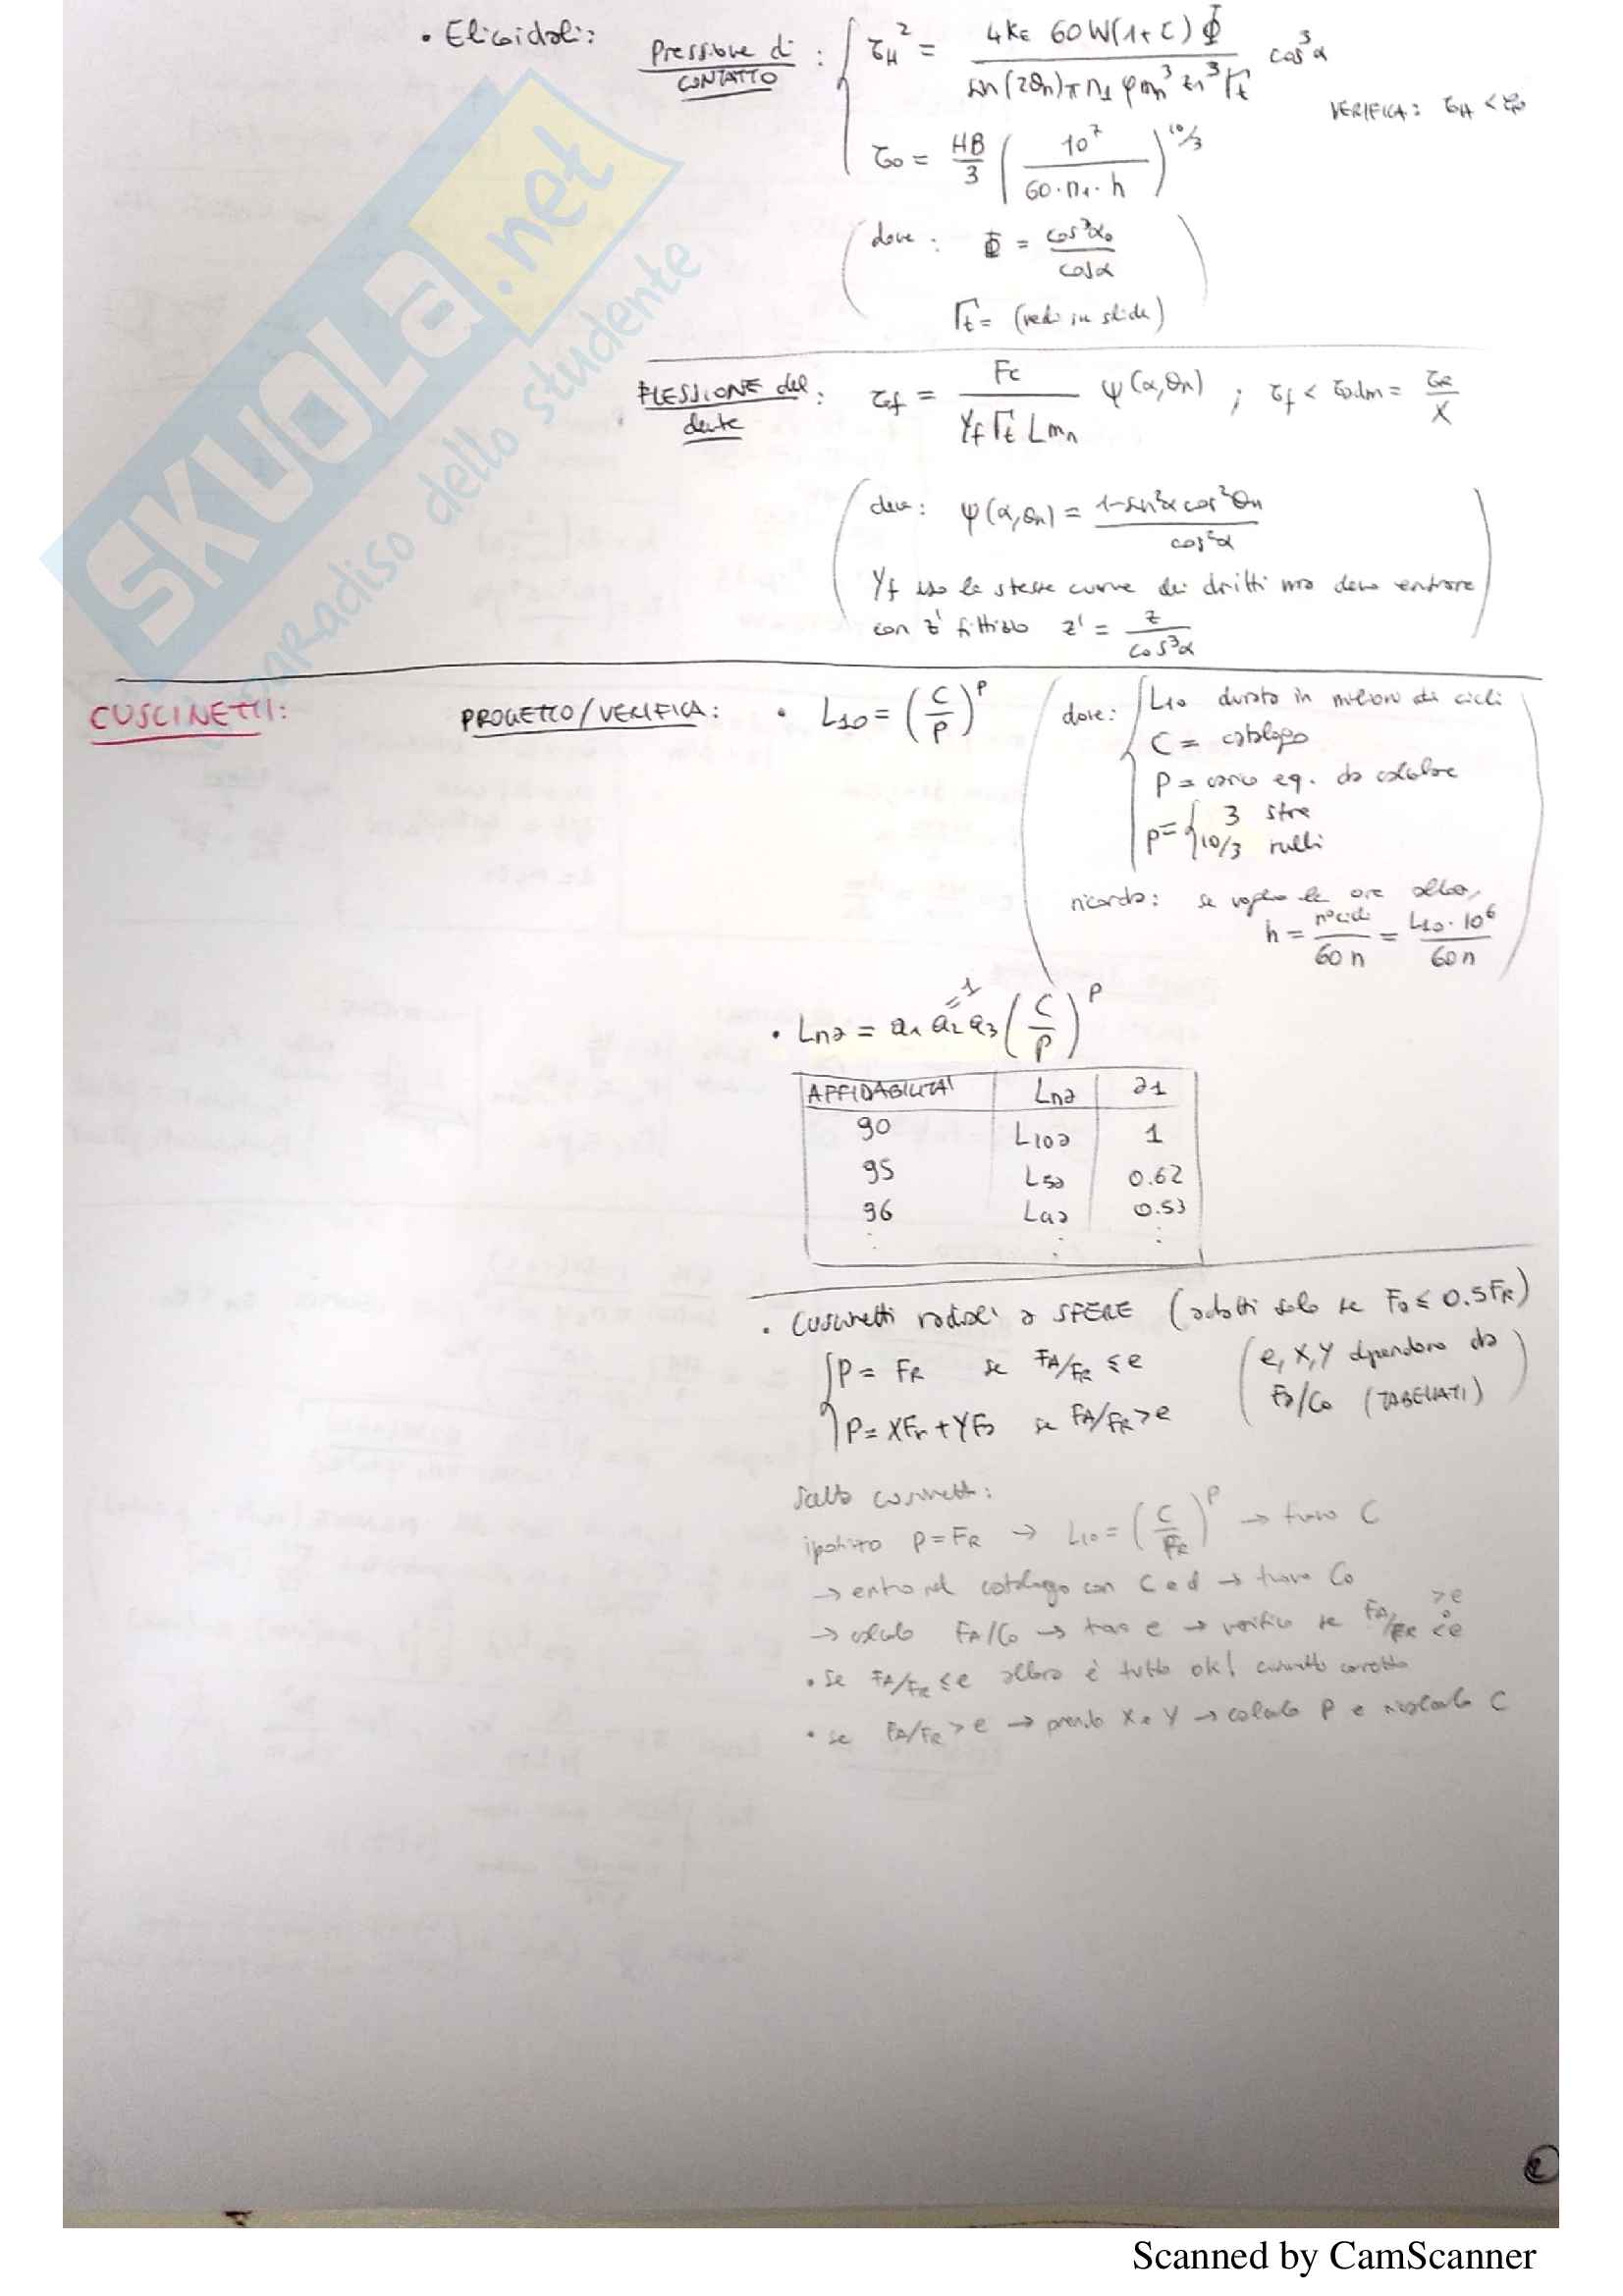 • Elicoidali:
Pressione di CONTATTO : σH² = 4KE 60W(1+C) Φ / sin(2θn) π n1 φ mn³ zn³ Γt cos³α
VERIFICA: σH < σo
σo = HB/3 (10⁷ / 60·n1·h)^10/3
(dove: Φ = cos³αo / cosα
Γt = (vedi in slide)
FLESSIONE del dente : σf = Fc / Yf Γt L mn ψ(α,θn) ; σf < σadm = σR / X
(dove: ψ(α,θn) = 1-sin²α cos²θn / cos²α
Yf uso le stesse curve dei dritti ma devo entrare
con z' fittizio z' = z / cos³α
CUSCINETTI: PROGETTO/VERIFICA: • L10 = (C/P)^p
dove: L10 durata in milioni di cicli
C = catalogo
P = carico eq. da calcolare
p = { 3 sfere
10/3 rulli
ricorda: se voglio le ore allora,
h = n°cicli / 60 n = L10·10⁶ / 60 n
• Lna = a1 a2 a3 (C/P)^p
=1
AFFIDABILITA' Lna a1
90 L10a 1
95 L5a 0.62
96 L4a 0.53
• Cuscinetti radiali a SFERE (adatti solo se Fa ≤ 0.5FR)
P = FR se FA/FR ≤ e
(e, X, Y dipendono da
Fa/Co (TABELLATI)
P = XFr + YFa se FA/FR > e
Scelta cuscinetti:
ipotizzo P = FR → L10 = (C/FR)^p → trovo C
→ entro nel catalogo con C e d → trovo Co
→ calcolo FA/Co → trovo e → verifico se FA/FR >e o <e
• Se FA/FR ≤ e allora è tutto ok! cuscinetto corretto
• se FA/FR > e → prendo X e Y → calcolo P e ricalcolo C
2
SKUOLA.net
paradiso dello studente
Scanned by CamScanner